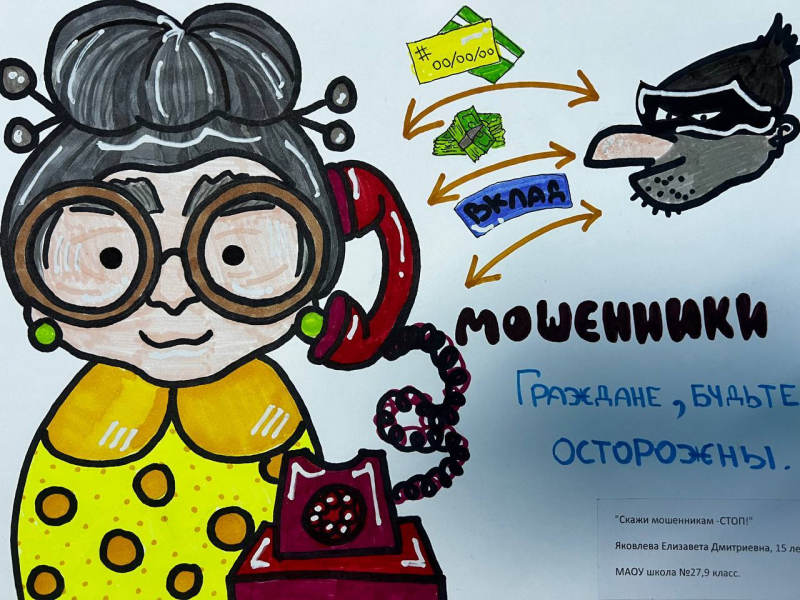 # 00/00/00
ВКЛАД
МОШЕННИКИ
ГРАЖДАНЕ, БУДЬТЕ
ОСТОРОЖНЫ.
"Скажи мошенникам -СТОП!"
Яковлева Елизавета Дмитриевна, 15 ле
МАОУ школа №27,9 класс.